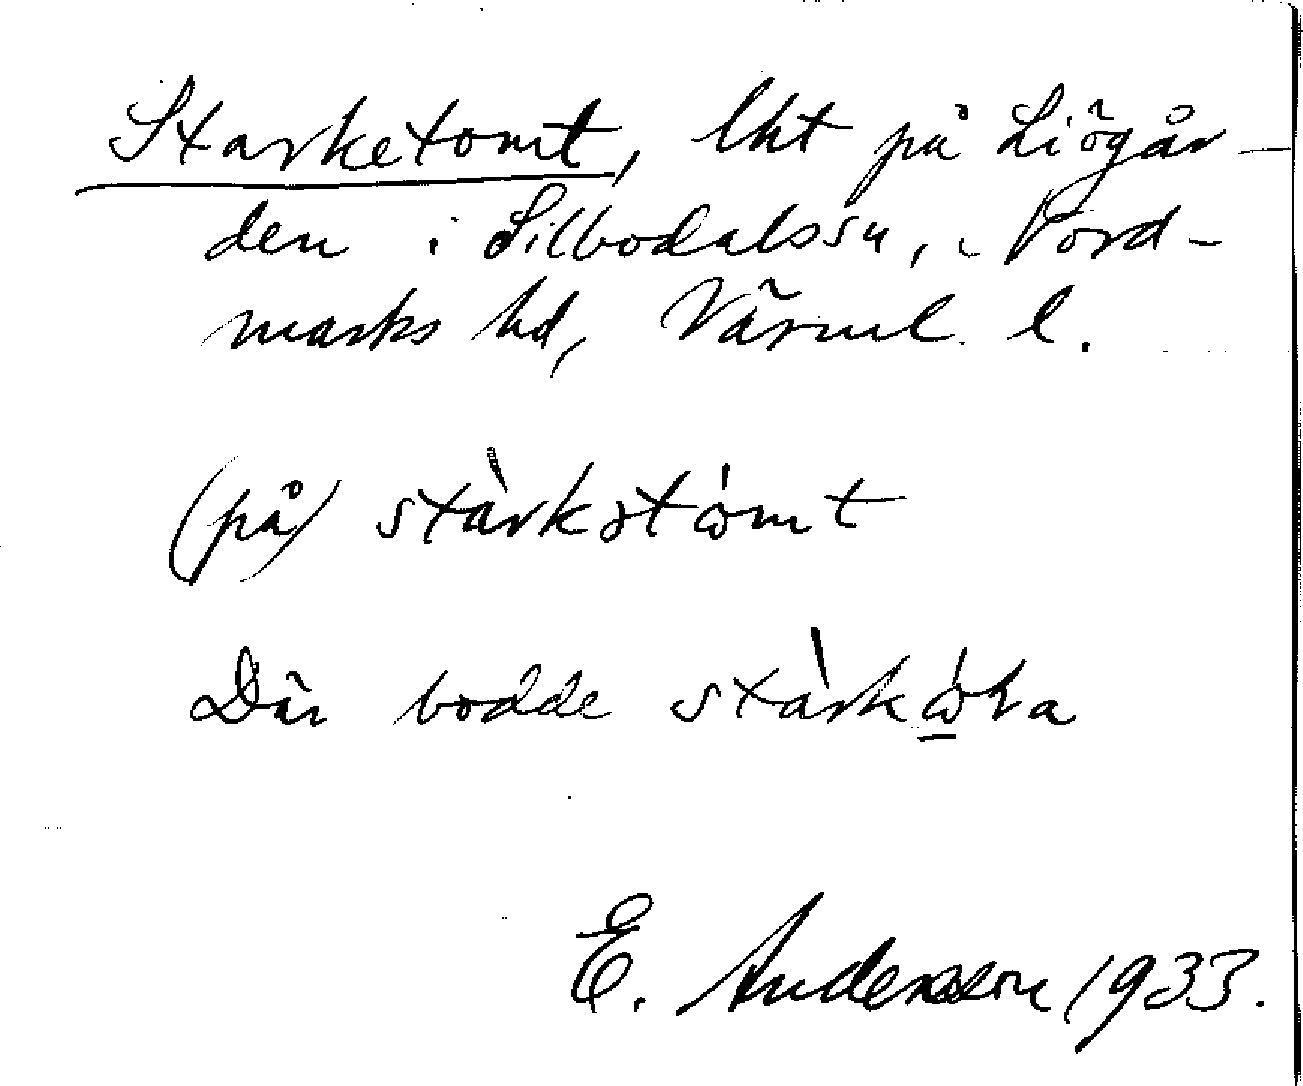 Starketomt, lht på Liögår-
den i Silbodals sn, Nord-
marks hd, Värml. l.
(på) stàrkətómt
Där bodde stàrk
E. Andersson 1933.